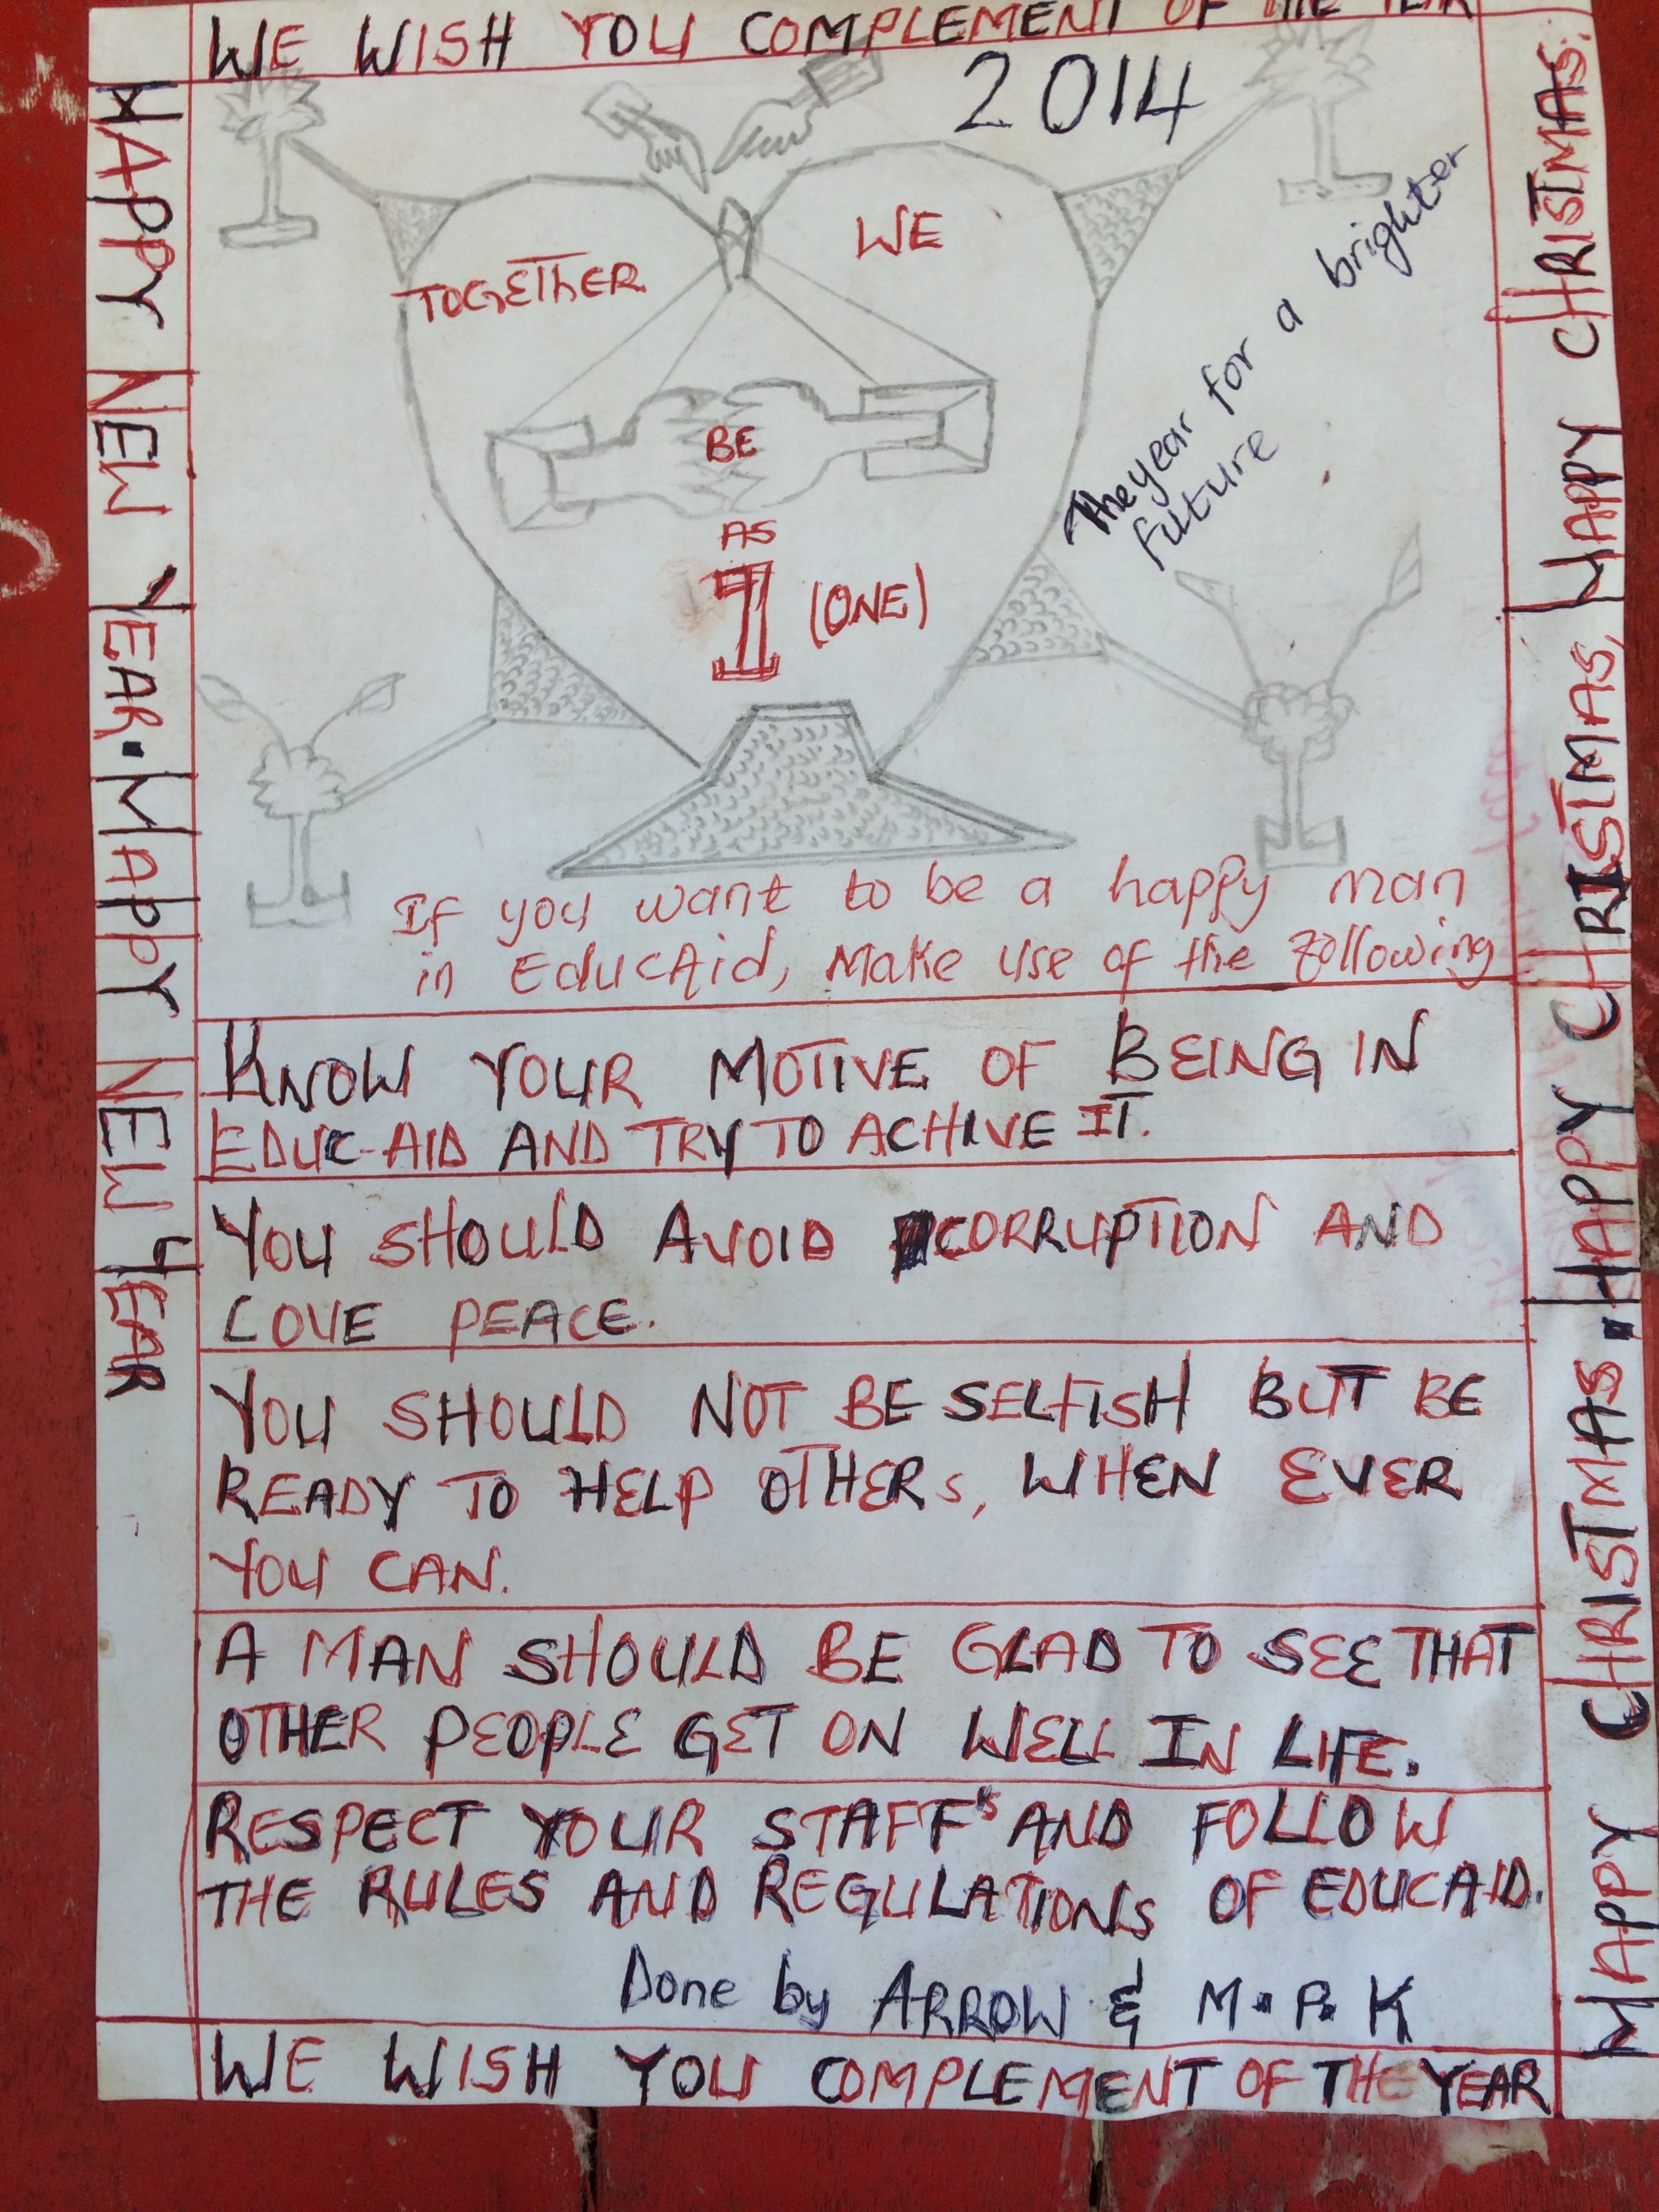 WE WISH YOU COMPLEMENT OF THE YEAR
2014
HAPPY NEW YEAR. HAPPY NEW YEAR
HAPPY CHRISTMAS. HAPPY CHRISTMAS, HAPPY CHRISTMAS.
TOGETHER
WE
BE
AS
I (ONE)
The year for a brighter
future
If you want to be a happy man
in EducAid, Make use of the following
KNOW YOUR MOTIVE OF BEING IN
EDUC-AID AND TRY TO ACHIVE IT.
YOU SHOULD AVOID CORRUPTION AND
LOVE PEACE.
YOU SHOULD NOT BE SELFISH BUT BE
READY TO HELP OTHERs, WHEN EVER
YOU CAN.
A MAN SHOULD BE GLAD TO SEE THAT
OTHER PEOPLE GET ON WELL IN LIFE.
RESPECT YOUR STAFF's AND FOLLOW
THE RULES AND REGULATIONS OF EDUCAID.
Done by ARROW & M.P.K
WE WISH YOU COMPLEMENT OF THE YEAR